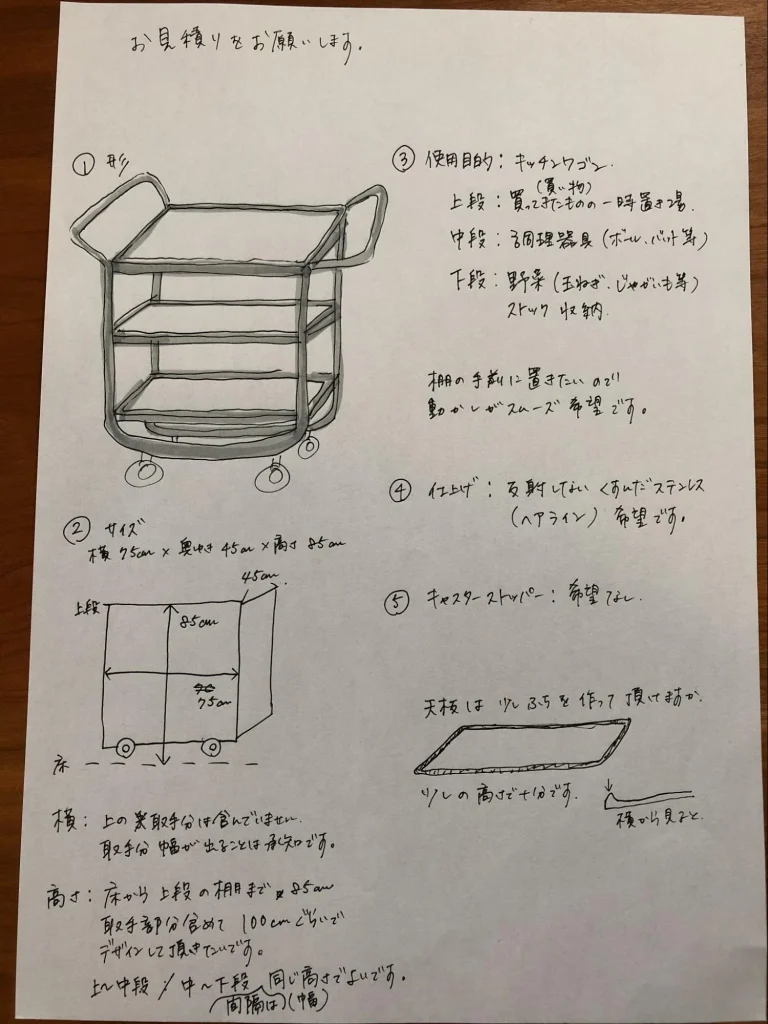 お見積りをお願いします。
① 形
② サイズ
横 75cm × 奥ゆき 45cm × 高さ 85cm
45cm
上段
85cm
75cm
床
横: 上の 取手分は含んでいません。
取手分 幅が出ることは承知です。
高さ: 床から 上段の棚まで 85cm
取手部分含めて 100cmぐらいで
デザインして頂きたいです。
上〜中段 / 中〜下段 同じ高さでよいです。
間隔は (幅)
③ 使用目的: キッチンワゴン.
(買い物)
上段: 買ってきたものの一時置き場.
中段: 調理器具 (ボール、バット等)
下段: 野菜 (玉ねぎ、じゃがいも等)
ストック 収納.
棚の手前に置きたいので
動かしがスムーズ 希望です。
④ 仕上げ: 反射しない くすんだステンレス
(ヘアライン) 希望です。
⑤ キャスターストッパー: 希望なし.
天板は 少し ふちを 作って 頂けますか.
少しの高さで十分です.
横から見ると.